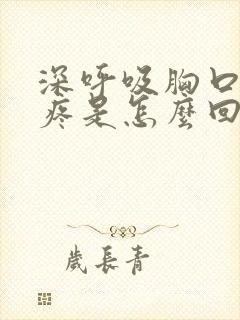 深呼吸胸口
疼是怎麼回
歲長青